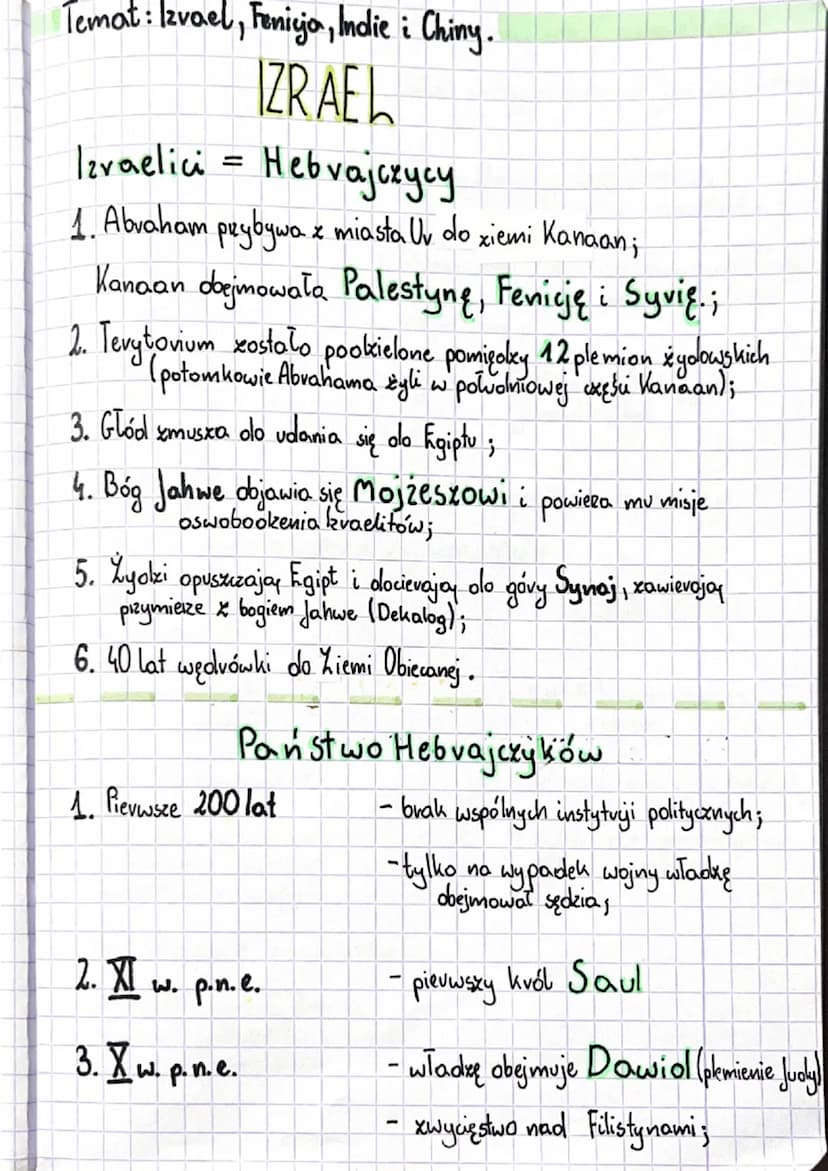 Temat: Izrael, Fenicja, Indie i Chiny.
IZRAEL
Izraelici = Hebrajczycy
1. Abraham przybywa z miasta Ur do ziemi Kanaan;
Kanaan obejmowała Palestynę, Fenicję i Syrię.;
2. Terytorium zostało podzielone pomiędzy 12 plemion żydowskich
(potomkowie Abrahama żyli w południowej części Kanaan);
3. Głód zmusza do udania się do Egiptu;
4. Bóg Jahwe objawia się Mojżeszowi i powierza mu misje
oswobodzenia Izraelitów;
5. Żydzi opuszczają Egipt i docierają do góry Synaj, zawierają
przymierze z bogiem Jahwe (Dekalog);
6. 40 lat wędrówki do Ziemi Obiecanej.
Państwo Hebrajczyków
1. Pierwsze 200 lat - brak wspólnych instytucji politycznych;
- tylko na wypadek wojny władzę
obejmował sędzia;
2. XI w. p.n.e. - pierwszy król Saul
3. X w. p.n.e. - władzę obejmuje Dawid (plemienie Judy)
- zwycięstwo nad Filistynami;